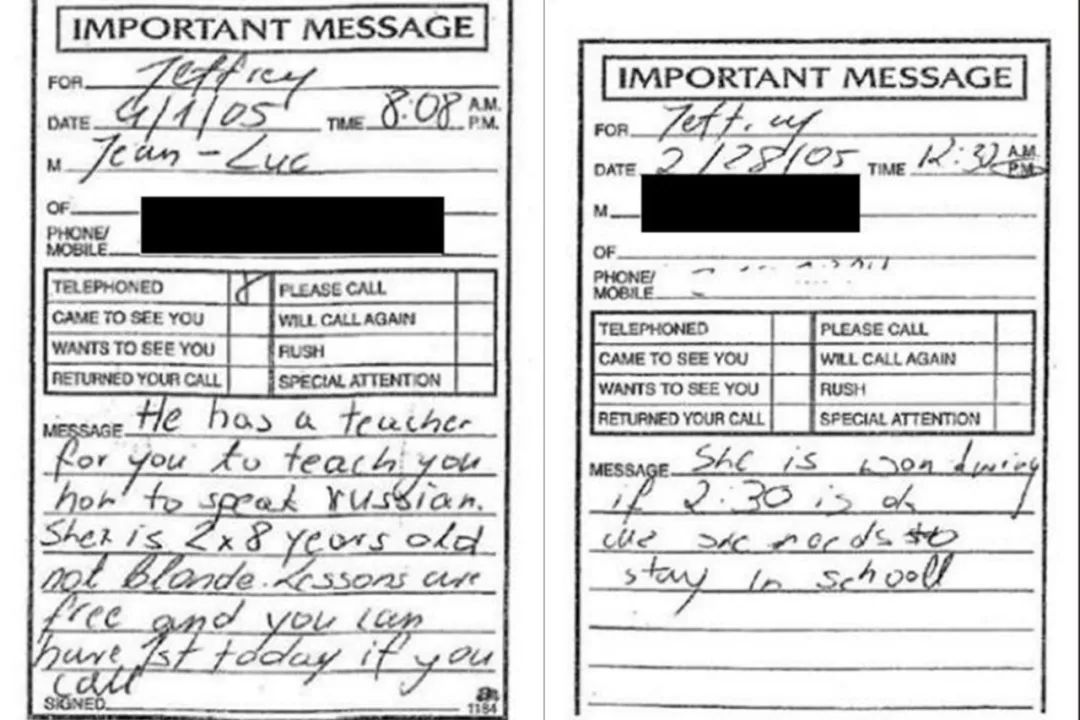 IMPORTANT MESSAGE
FOR Jeffrey
DATE 4/1/05 TIME 8:08 A.M. P.M.
M Jean-Luc
OF
PHONE/ MOBILE
TELEPHONED PLEASE CALL
CAME TO SEE YOU WILL CALL AGAIN
WANTS TO SEE YOU RUSH
RETURNED YOUR CALL SPECIAL ATTENTION
MESSAGE He has a teacher
for you to teach you
how to speak russian.
She is 2x8 years old
not blonde. Lessons are
free and you can
have 1st today if you
call
SIGNED
1184
IMPORTANT MESSAGE
FOR Jeffrey
DATE 2/28/05 TIME 12:32 A.M. P.M.
M
OF
PHONE/ MOBILE
TELEPHONED PLEASE CALL
CAME TO SEE YOU WILL CALL AGAIN
WANTS TO SEE YOU RUSH
RETURNED YOUR CALL SPECIAL ATTENTION
MESSAGE She is wondering
if 2:30 is ok
she needs to
stay in schooll